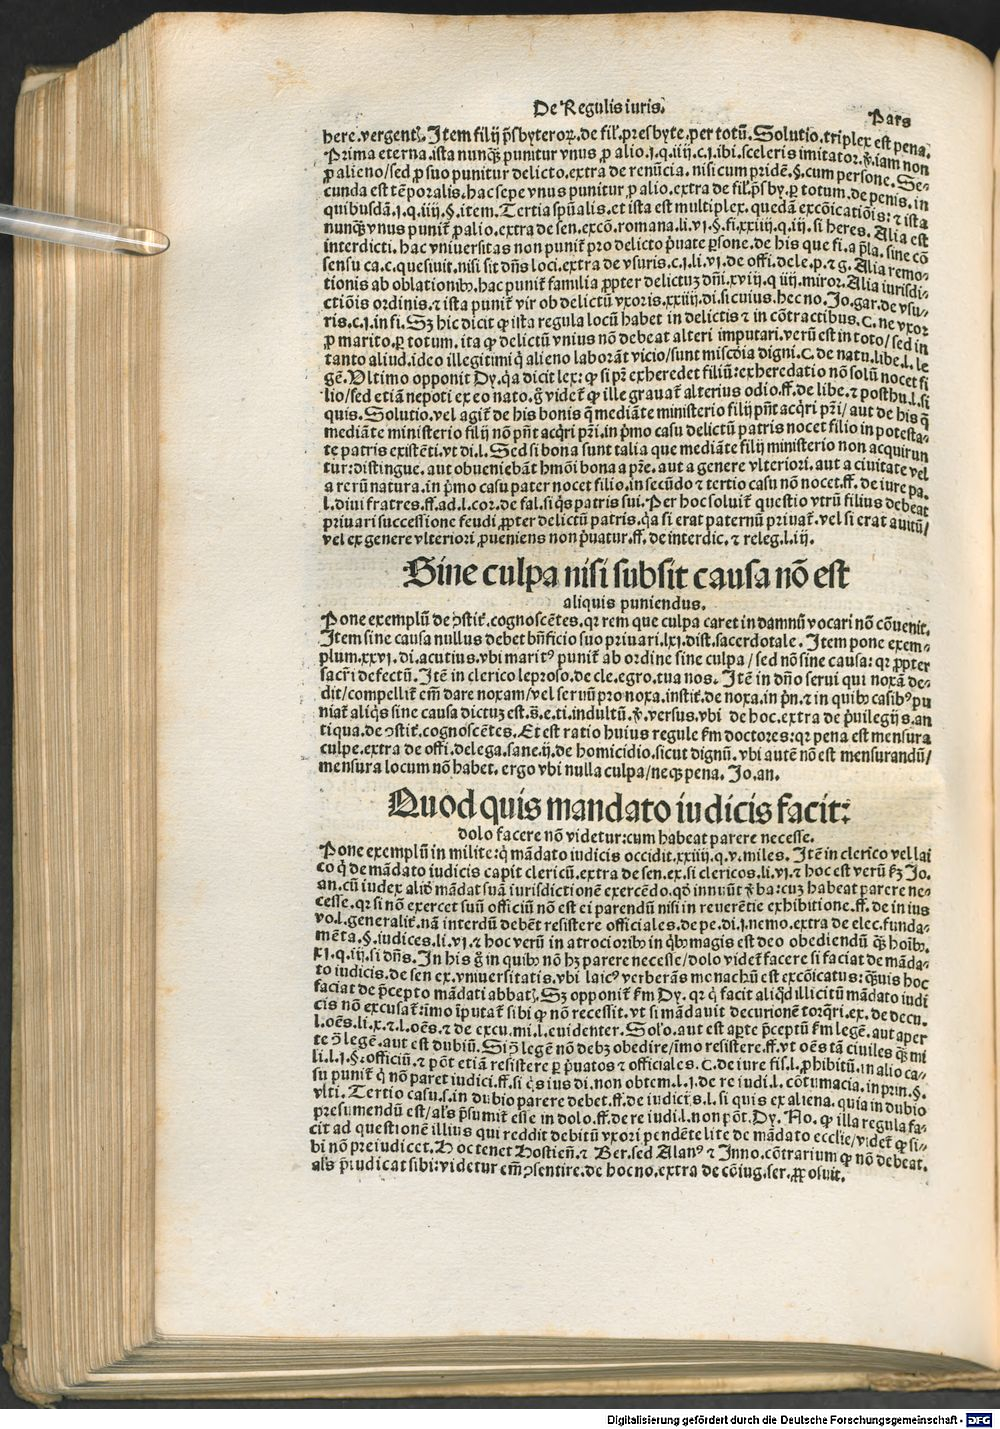 De Regulis iuris.
Pars
here.vergentꝭ. Item filij p̃sbyteroꝝ.de fil̃.presbyte.per totũ. Solutio.triplex est pena.
Prima eterna.ista nunqꝫ punitur vnus ꝓ alio.i.q.iiij.c.i.ibi.sceleris imitator.ꝟ.iam non
ꝓ alieno/sed ꝓ suo punitur delicto.extra de renũcia. nisi cum pridẽ.§.cum persone. Se-
cunda est tẽporalis.hac sepe vnus punitur ꝓ alio.extra de fil̃.p̃sby.ꝑ totum.de penis.in
quibusdã.i.q.iiij.§.item. Tertia spũalis.et ista est multiplex. quedã excõicatiõis: ⁊ ista
nunqꝫ vnus punit̃ ꝓ alio.extra de sen.excõ.romana.li.vi.§.fi.xxiiij.q.iij.si heres. Alia est
interdicti. hac vniuersitas non punit̃ pro delicto p̃uate ꝑsone. de his que fi.a p̃la. sine cõ
sensu ca.c.quesiuit.nisi sit dñs loci.extra de vsuris.c.i.li.vi.de offi.dele.p.⁊ g. Alia remo-
tionis ab oblationibꝰ.hac punit̃ familia ꝓpter delictuꝫ dñi.xviij.q iiij.miror. Alia iurisdi-
ctiõis ordinis.⁊ ista punit̃ vir ob delictũ vxoris.xxiiij.di.si cuius.hec no. Jo.gar.de vsu-
ris.c.i.in fi. Sꝫ hic dicit ꝙ ista regula locũ habet in delictis ⁊ in cõtractibus. C. ne vxor
ꝓ marito.ꝑ totum. ita ꝙ delictũ vnius nõ debeat alteri imputari.verũ est in toto/sed in
tanto aliud.ideo illegitimi q̃ alieno laborãt vicio/sunt misc̃dia digni. C. de natu.libe.l. le
gẽ. Vltimo opponit Dy. q̃a dicit lex: ꝙ si pr̃ exheredet filiũ: exheredatio nõ solũ nocet fi
lio/sed etiã nepoti ex eo nato. g̃ videt̃ ꝙ ille grauat̃ alterius odio.ff.de libe.⁊ posthu.l.si
quis. Solutio. vel agit̃ de his bonis q̃ mediãte ministerio filij pñt acq̃ri pr̃i/ aut de his q̃
mediãte ministerio filij nõ pñt acq̃ri pr̃i. in p̃mo casu delictũ patris nocet filio in potesta-
te patris existẽti.vt di.l. Sed si bona sunt talia que mediãte filij ministerio non acquirun
tur: distingue. aut obueniebãt hmõi bona a pr̃e. aut a genere vlteriori. aut a ciuitate vel
a rerũ natura. in p̃mo casu pater nocet filio. in secũdo ⁊ tertio casu nõ nocet.ff. de iure pa.
l.diui fratres.ff.ad.l.cor.de fal.si q̃s patris sui. Per hoc soluit̃ questio vtrũ filius debeat
priuari successione feudi ꝓpter delictũ patris. q̃a si erat paternũ priuat̃.vel si erat auitũ/
vel ex genere vlteriori ꝓueniens non p̃uatur.ff. de interdic.⁊ releg.l.iij.
Sine culpa nisi subsit causa nõ est
aliquis puniendus.
Pone exemplũ de ↄstit̃.cognoscẽtes.qr rem que culpa caret in damnũ vocari nõ cõuenit.
Item sine causa nullus debet bñficio suo priuari.lxi.dist.sacerdotale. Item pone exem-
plum.xxvi.di.acutius.vbi maritꝰ punit̃ ab ordine sine culpa / sed nõ sine causa: qr ꝓpter
sacr̃i defectũ. Itẽ in clerico leproso.de cle.egro.tua nos. Itẽ in dño serui qui noxã de-
dit/compellit̃ em̃ dare noxam/vel seruũ pro noxa.instit̃.de noxa.in p̃n.⁊ in quibꝰ casibꝰ pu
niat̃ aliq̃s sine causa dictuꝫ est.s̃.e.ti.indultũ.ꝟ.versus.vbi de hoc.extra de p̃uilegijs.an
tiqua.de ↄstit̃.cognoscẽtes. Et est ratio huius regule ẜm doctores: qr pena est mensura
culpe.extra de offi.delega.sane.ij.de homicidio.sicut dignũ.vbi autẽ nõ est mensurandũ/
mensura locum nõ habet. ergo vbi nulla culpa/neqꝫ pena. Jo.an.
Quod quis mandato iudicis facit:
dolo facere nõ videtur: cum habeat parere necesse.
Pone exemplũ in milite: q̃ mãdato iudicis occidit.xxiij.q.v.miles. Itẽ in clerico vel lai
co q̃ de mãdato iudicis capit clericũ.extra de sen.ex.si clericos.li.vi.⁊ hoc est verũ ẜꝫ Jo.
an.cũ iudex aliq̃d mãdat suã iurisdictionẽ exercẽdo.qd̃ innuũt ꝟba: cuꝫ habeat parere ne-
cesse.qr si nõ exercet suũ officiũ nõ est ei parendũ nisi in reuerẽtie exhibitione.ff. de in ius
vo.l.generalit̃.nã interdũ debẽt resistere officiales.de pe.di.i.nemo.extra de elec.funda-
mẽta.§.iudices.li.vi.⁊ hoc verũ in atrocioribꝰ in q̃bꝰ magis est deo obediendũ qꝫ hoĩbꝰ.
xi.q.iij.si dñs. In his g̃ in quibꝰ nõ hꝫ parere necesse/dolo videt̃ facere si faciat de mãda-
to iudicis.de sen ex.vniuersitatis.vbi laicꝰ verberãs monachũ est excõicatus: qꝫuis hoc
faciat de p̃cepto mãdati abbatꝭ. Sꝫ opponit̃ ẜm Dy. qr q̃ facit aliq̃d illicitũ mãdato iudi
cis nõ excusat̃: imo ĩputat̃ sibi ꝙ nõ recessit. vt si mãdauit decurionẽ torq̃ri.ex.de decu.
l.oẽs.li.x.⁊ l.oẽs.⁊ de excu.mi.l.euidenter. Sol̃o.aut est aꝑte p̃ceptũ ẜm legẽ.aut aper
te ↄ̃ legẽ.aut est dubiũ. Si ↄ̃ legẽ nõ debꝫ obedire/ĩmo resistere.ff.vt oẽs tã ciuiles qꝫ mi
li.l.i.§.officiũ.⁊ põt etiã resistere ꝑ p̃uatos ⁊ officiales. C. de iure fis.l.ꝓhibitũ.in alio ca-
su punit̃ q̃ nõ paret iudici.ff.si q̃s ius di.non obtem.l.i.de re iudi.l.cõtumacia.in prin.§.
vlti. Tertio casu.s.in dubio parere debet.ff.de iudicijs.l.si quis ex aliena. quia in dubio
presumendũ est/al̃s p̃sumit̃ esse in dolo.ff.de re iudi.l.non põt. Dy. No. ꝙ illa regula fa-
cit ad questionẽ illius qui reddit debitũ vxori pendẽte lite de mãdato ecclie/videt̃ ꝙ si-
bi nõ preiudicet. Hoc tenet Hostien̄.⁊ Ber.sed Alanꝰ ⁊ Inno. cõtrarium ꝙ nõ debeat.
al̃s p̃iudicat sibi: videtur em̃ ↄsentire.de hoc no.extra de cõiug.ser.ꝓposuit.
Digitalisierung gefördert durch die Deutsche Forschungsgemeinschaft - DFG